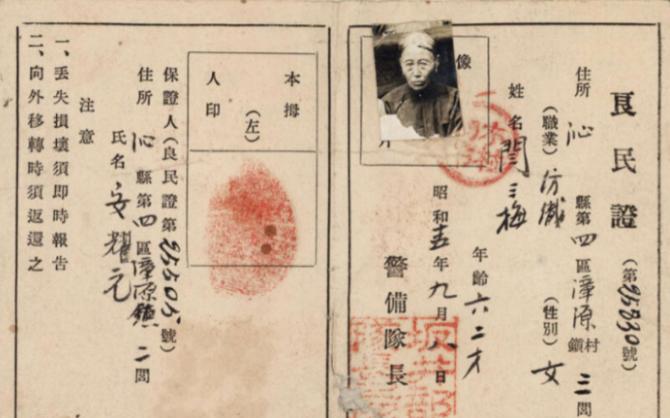 良民證
(第25230號)
住所 沁縣第四區漳源鎮村三閭
(職業)紡織 (性別)女
姓名閆三梅
年齡六二才
昭和十五年九月八日
警備隊長
像
片
本拇
(左)
人印
保證人(良民證第25505號)
住所沁縣第四區漳源鎮二閭
氏名安耀元
注意
一、丟失損壞須即時報告
二、向外移轉時須返還之